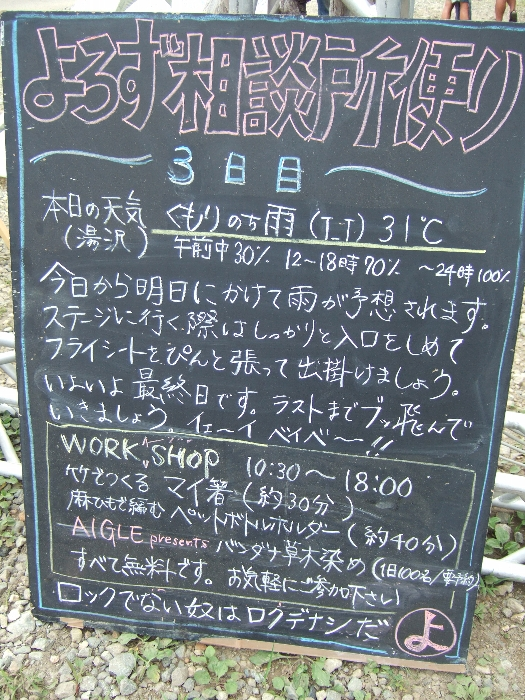 よろず相談所便り
3日目
本日の天気 くもりのち雨 (T_T) 31℃
(湯沢) 午前中30% 12~18時70% ~24時100%
今日から明日にかけて雨が予想されます。
ステージに行く際はしっかりと入口をしめて
フライシートをぴんと張って出掛けましょう。
いよいよ最終日です。ラストまでブッ飛んで
いきましょう。イェ~イ ベイベ~!!
WORK SHOP 10:30~18:00
竹でつくる マイ箸 (約30分)
麻ひもで編む ペットボトルホルダー (約40分)
AIGLE presents バンダナ草木染め (1日100名/要予約)
すべて無料です。お気軽にご参加下さい
ロックでない奴はロクデナシだ よ